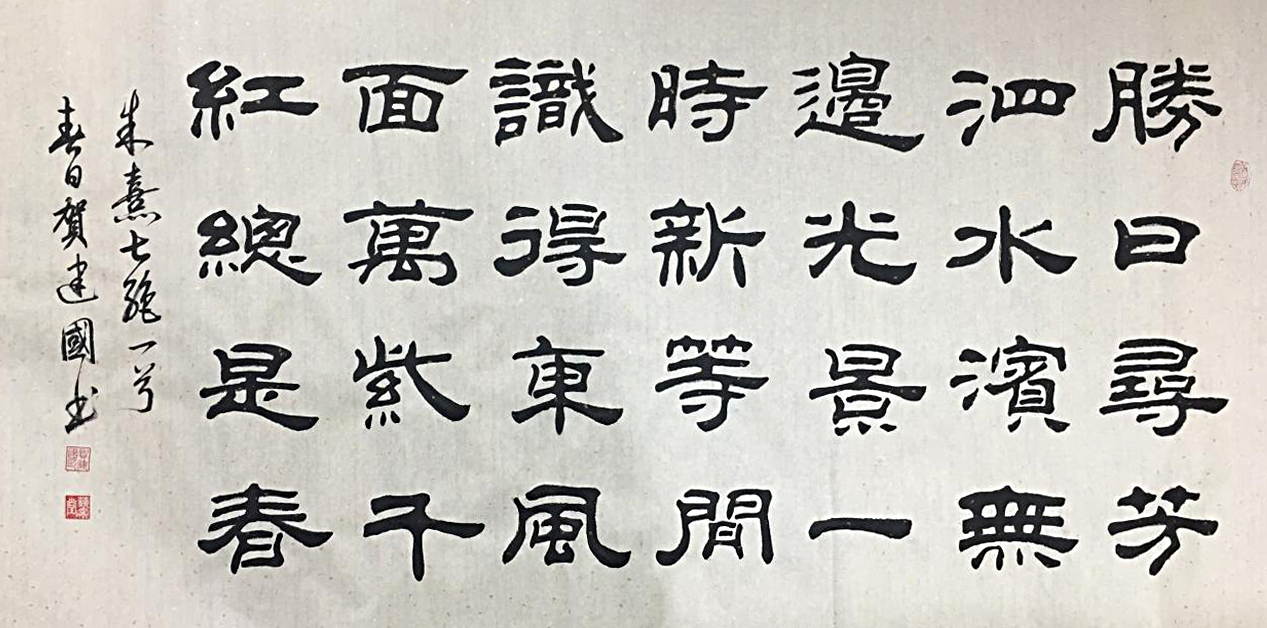 勝日尋芳
泗水濱無
邊光景一
時新等閒
識得東風
面萬紫千
紅總是春
朱熹七绝一首
春日賀建國书